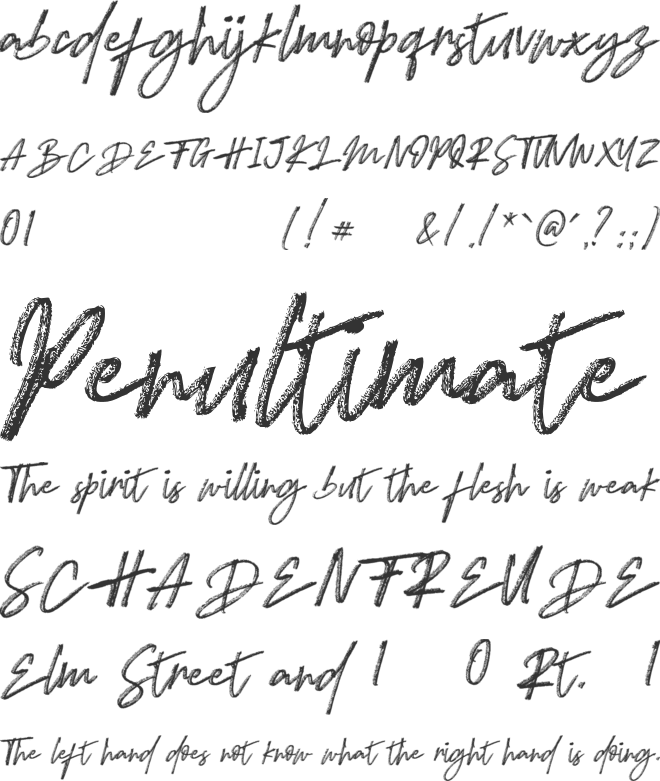 abcdefghijklmnopqrstuvwxyz
ABCDEFGHIJKLMNOPQRSTUVWXYZ
01 (!# &/./*`@´,?:;)
Penultimate
The spirit is willing but the flesh is weak
SCHADENFREUDE
Elm Street and 1 0 Rt. 1
The left hand does not know what the right hand is doing.